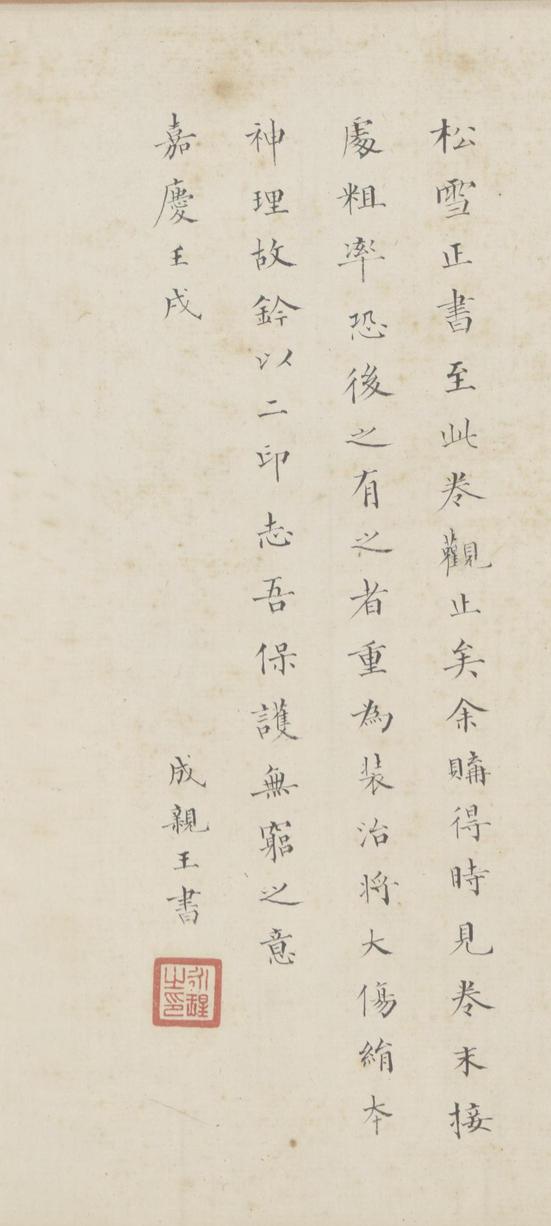 松雪正書至此卷觀止矣余購得時見卷末接
處粗率恐後之有之者重為裝治將大傷絹本
神理故鈐以二印志吾保護無窮之意
嘉慶壬戌
成親王書
永瑆之印